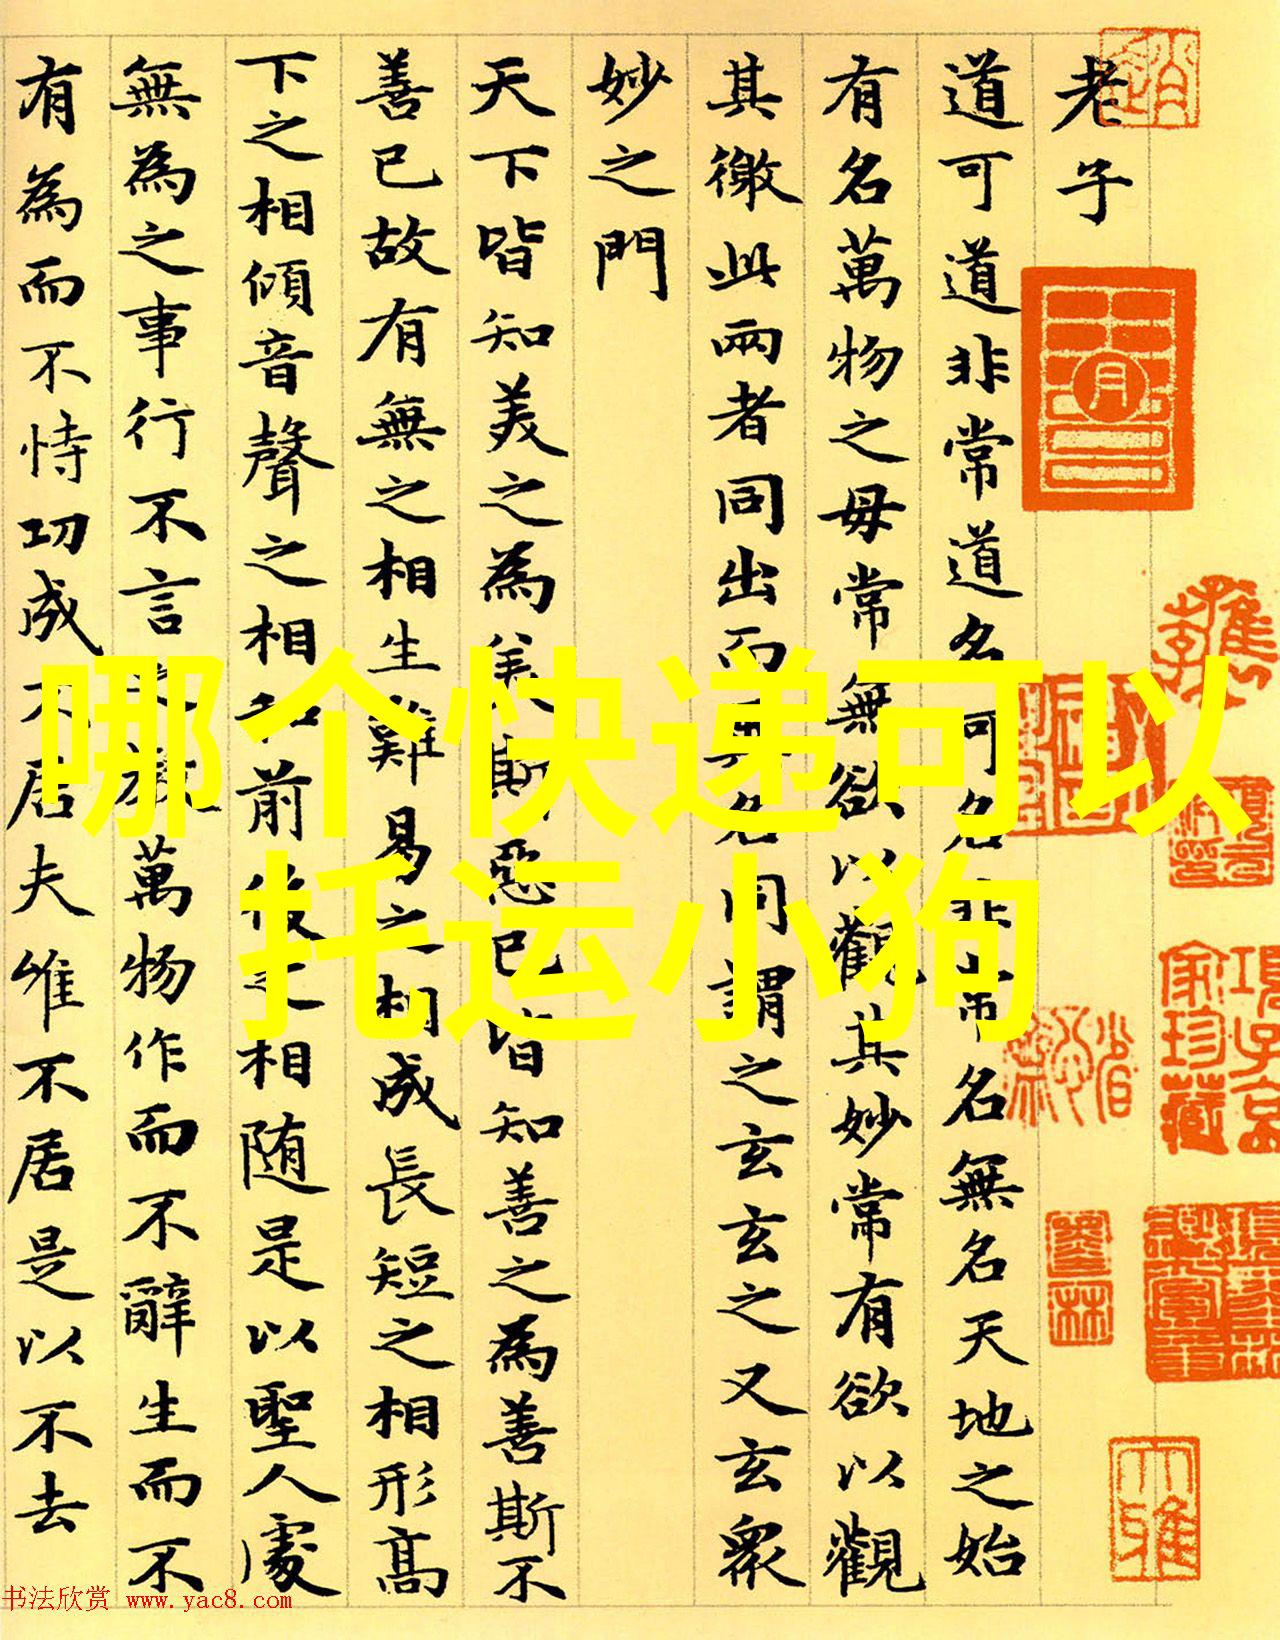 老子
道可道非常道名可名非常名無名天地之始
有名萬物之母常無欲以觀其妙常有欲以觀
其徼此兩者同出而異名同謂之玄玄之又玄衆
妙之門
天下皆知美之為美斯惡已皆知善之為善斯不
善已故有無之相生難易之相成長短之相形高
下之相傾音聲之相和前後之相随是以聖人處
無為之事行不言之教萬物作而不辭生而不
有為而不恃功成不居夫唯不居是以不去
哪个快递可以
托运小狗
书法欣赏 www.yac8.com